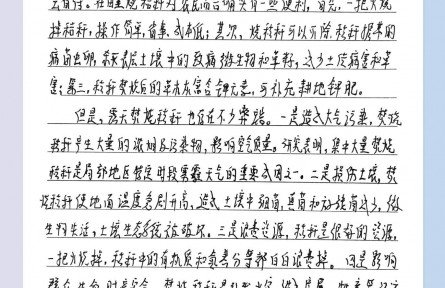 去看待。在田里烧秸秆对农民而言确实有一些便利，首先，一把火烧
掉秸秆，操作简单，省事，成本低；其次，烧秸秆可以除秸秆携带的
病菌虫卵，杀灭表层土壤中的致病微生物和草籽，减少土传病害和草
害；第三，秸秆焚烧后的草木灰富含钾元素，可补充耕地钾肥。
但是，露天焚烧秸秆也存在不少弊端。一是造成大气污染，焚烧
秸秆产生大量的浓烟及污染物，影响空气质量。研究表明，集中大量焚烧
秸秆是局部地区特定时段雾霾天气的重要成因之一。二是损伤土壤，焚
烧秸秆使地面温度急剧升高，造成土壤中细菌、真菌和放线菌减少，微
生物死活，土壤生态系统被破坏。三是浪费资源，秸秆是很好的资源，
一把火烧掉，秸秆中的有机质和氮素养分等都白白浪费掉。四是影响
群众生命财产安全，焚烧秸秆